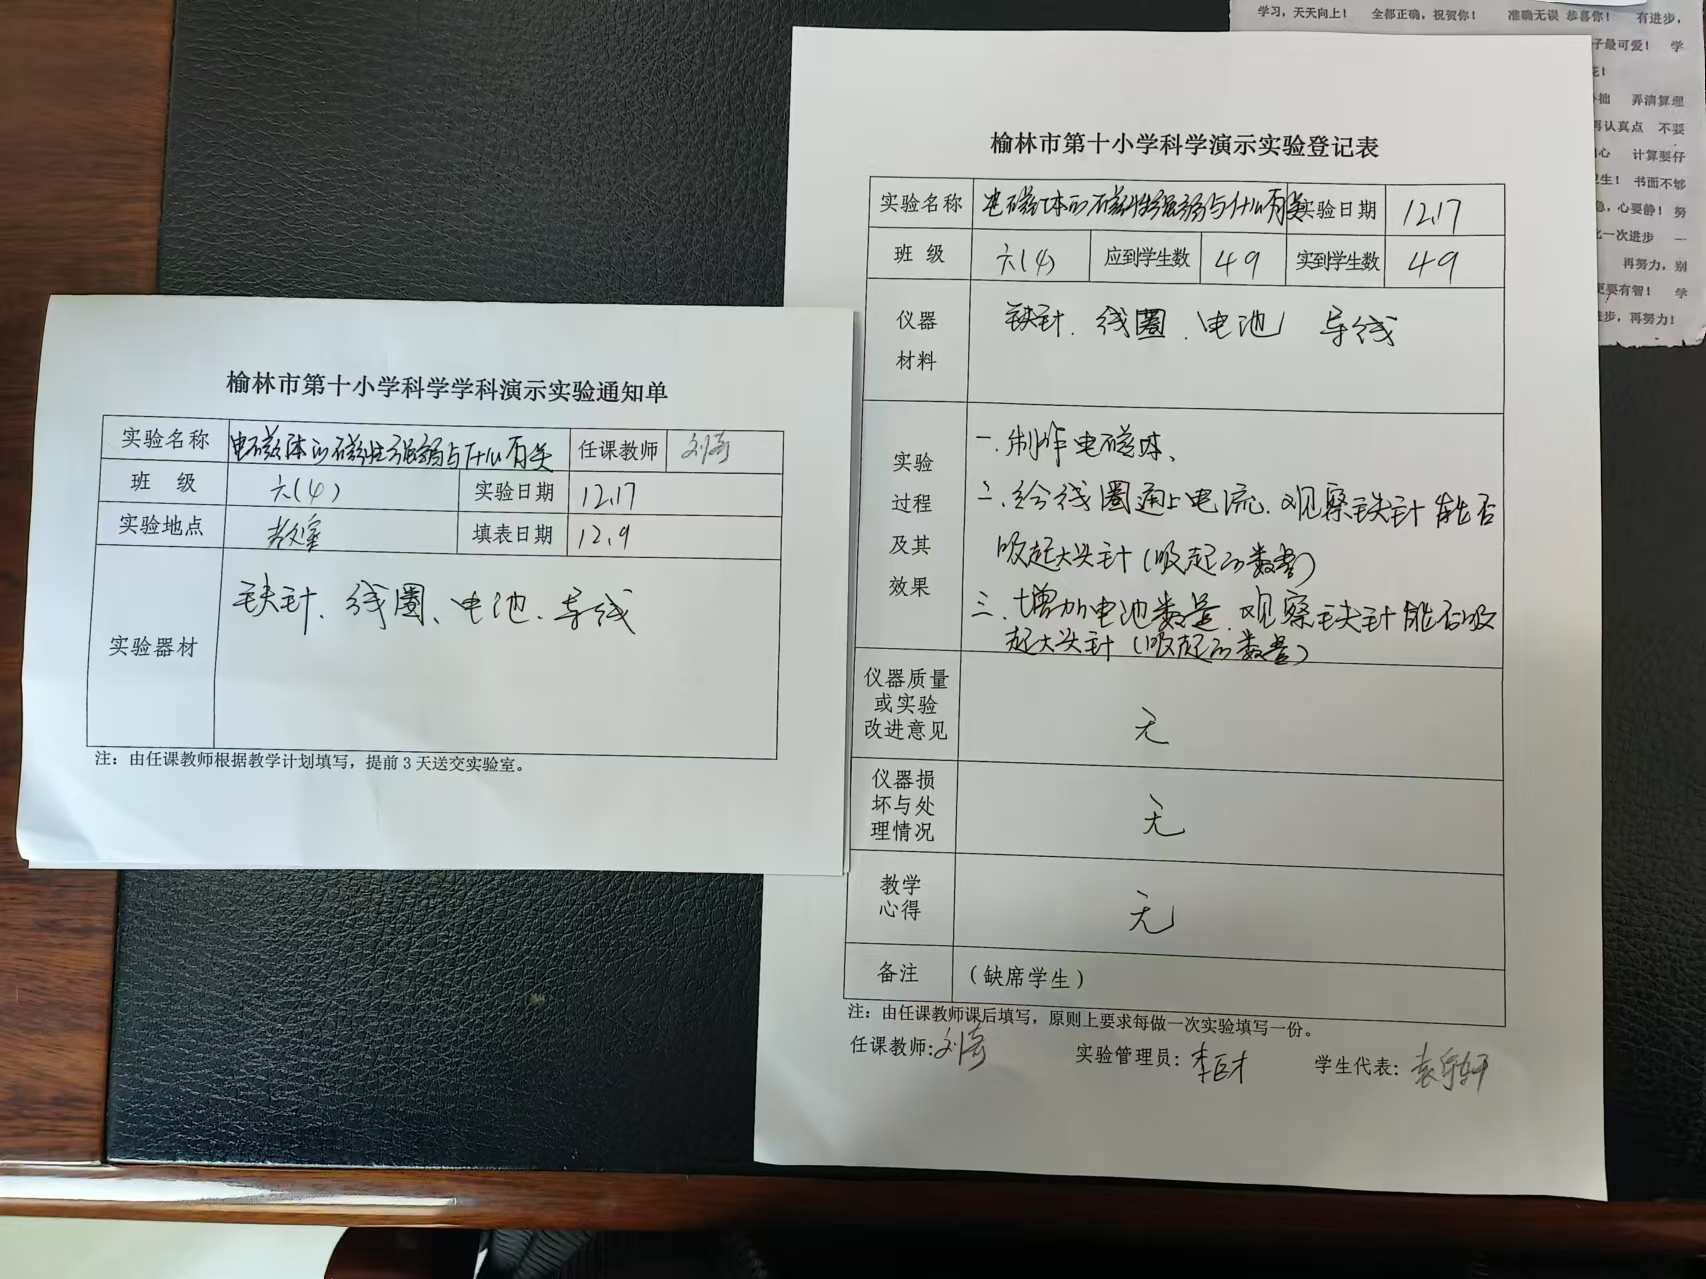 学习，天天向上！ 全都正确，祝贺你！ 准确无误 恭喜你！ 有进步，
子最可爱！ 学
花！
拙 弄清算理
再认真点 不要
心 计算要仔
卫生！ 书面不够
急，心要静！ 努
比一次进步 一
再努力，别
更要有智！ 学
进步，再努力！
榆林市第十小学科学学科演示实验通知单
实验名称 电磁体的磁性强弱与什么有关 任课教师
班 级 六(4) 实验日期 12.17
实验地点 教室 填表日期 12.9
实验器材 铁针、线圈、电池、导线
注：由任课教师根据教学计划填写，提前3天送交实验室。
榆林市第十小学科学演示实验登记表
实验名称 电磁体的磁性强弱与什么有关 实验日期 12.17
班 级 六(4) 应到学生数 49 实到学生数 49
仪器
材料
铁针、线圈、电池 导线
实验
过程
及其
效果
一.制作电磁体、
二.给线圈通上电流.观察铁针能否
吸起大头针(吸起的数量)
三.增加电池数量.观察铁针能否吸
起大头针(吸起的数量)
仪器质量
或实验
改进意见
无
仪器损
坏与处
理情况
无
教学
心得
无
备注 （缺席学生）
注：由任课教师课后填写，原则上要求每做一次实验填写一份。
任课教师: 实验管理员: 学生代表: